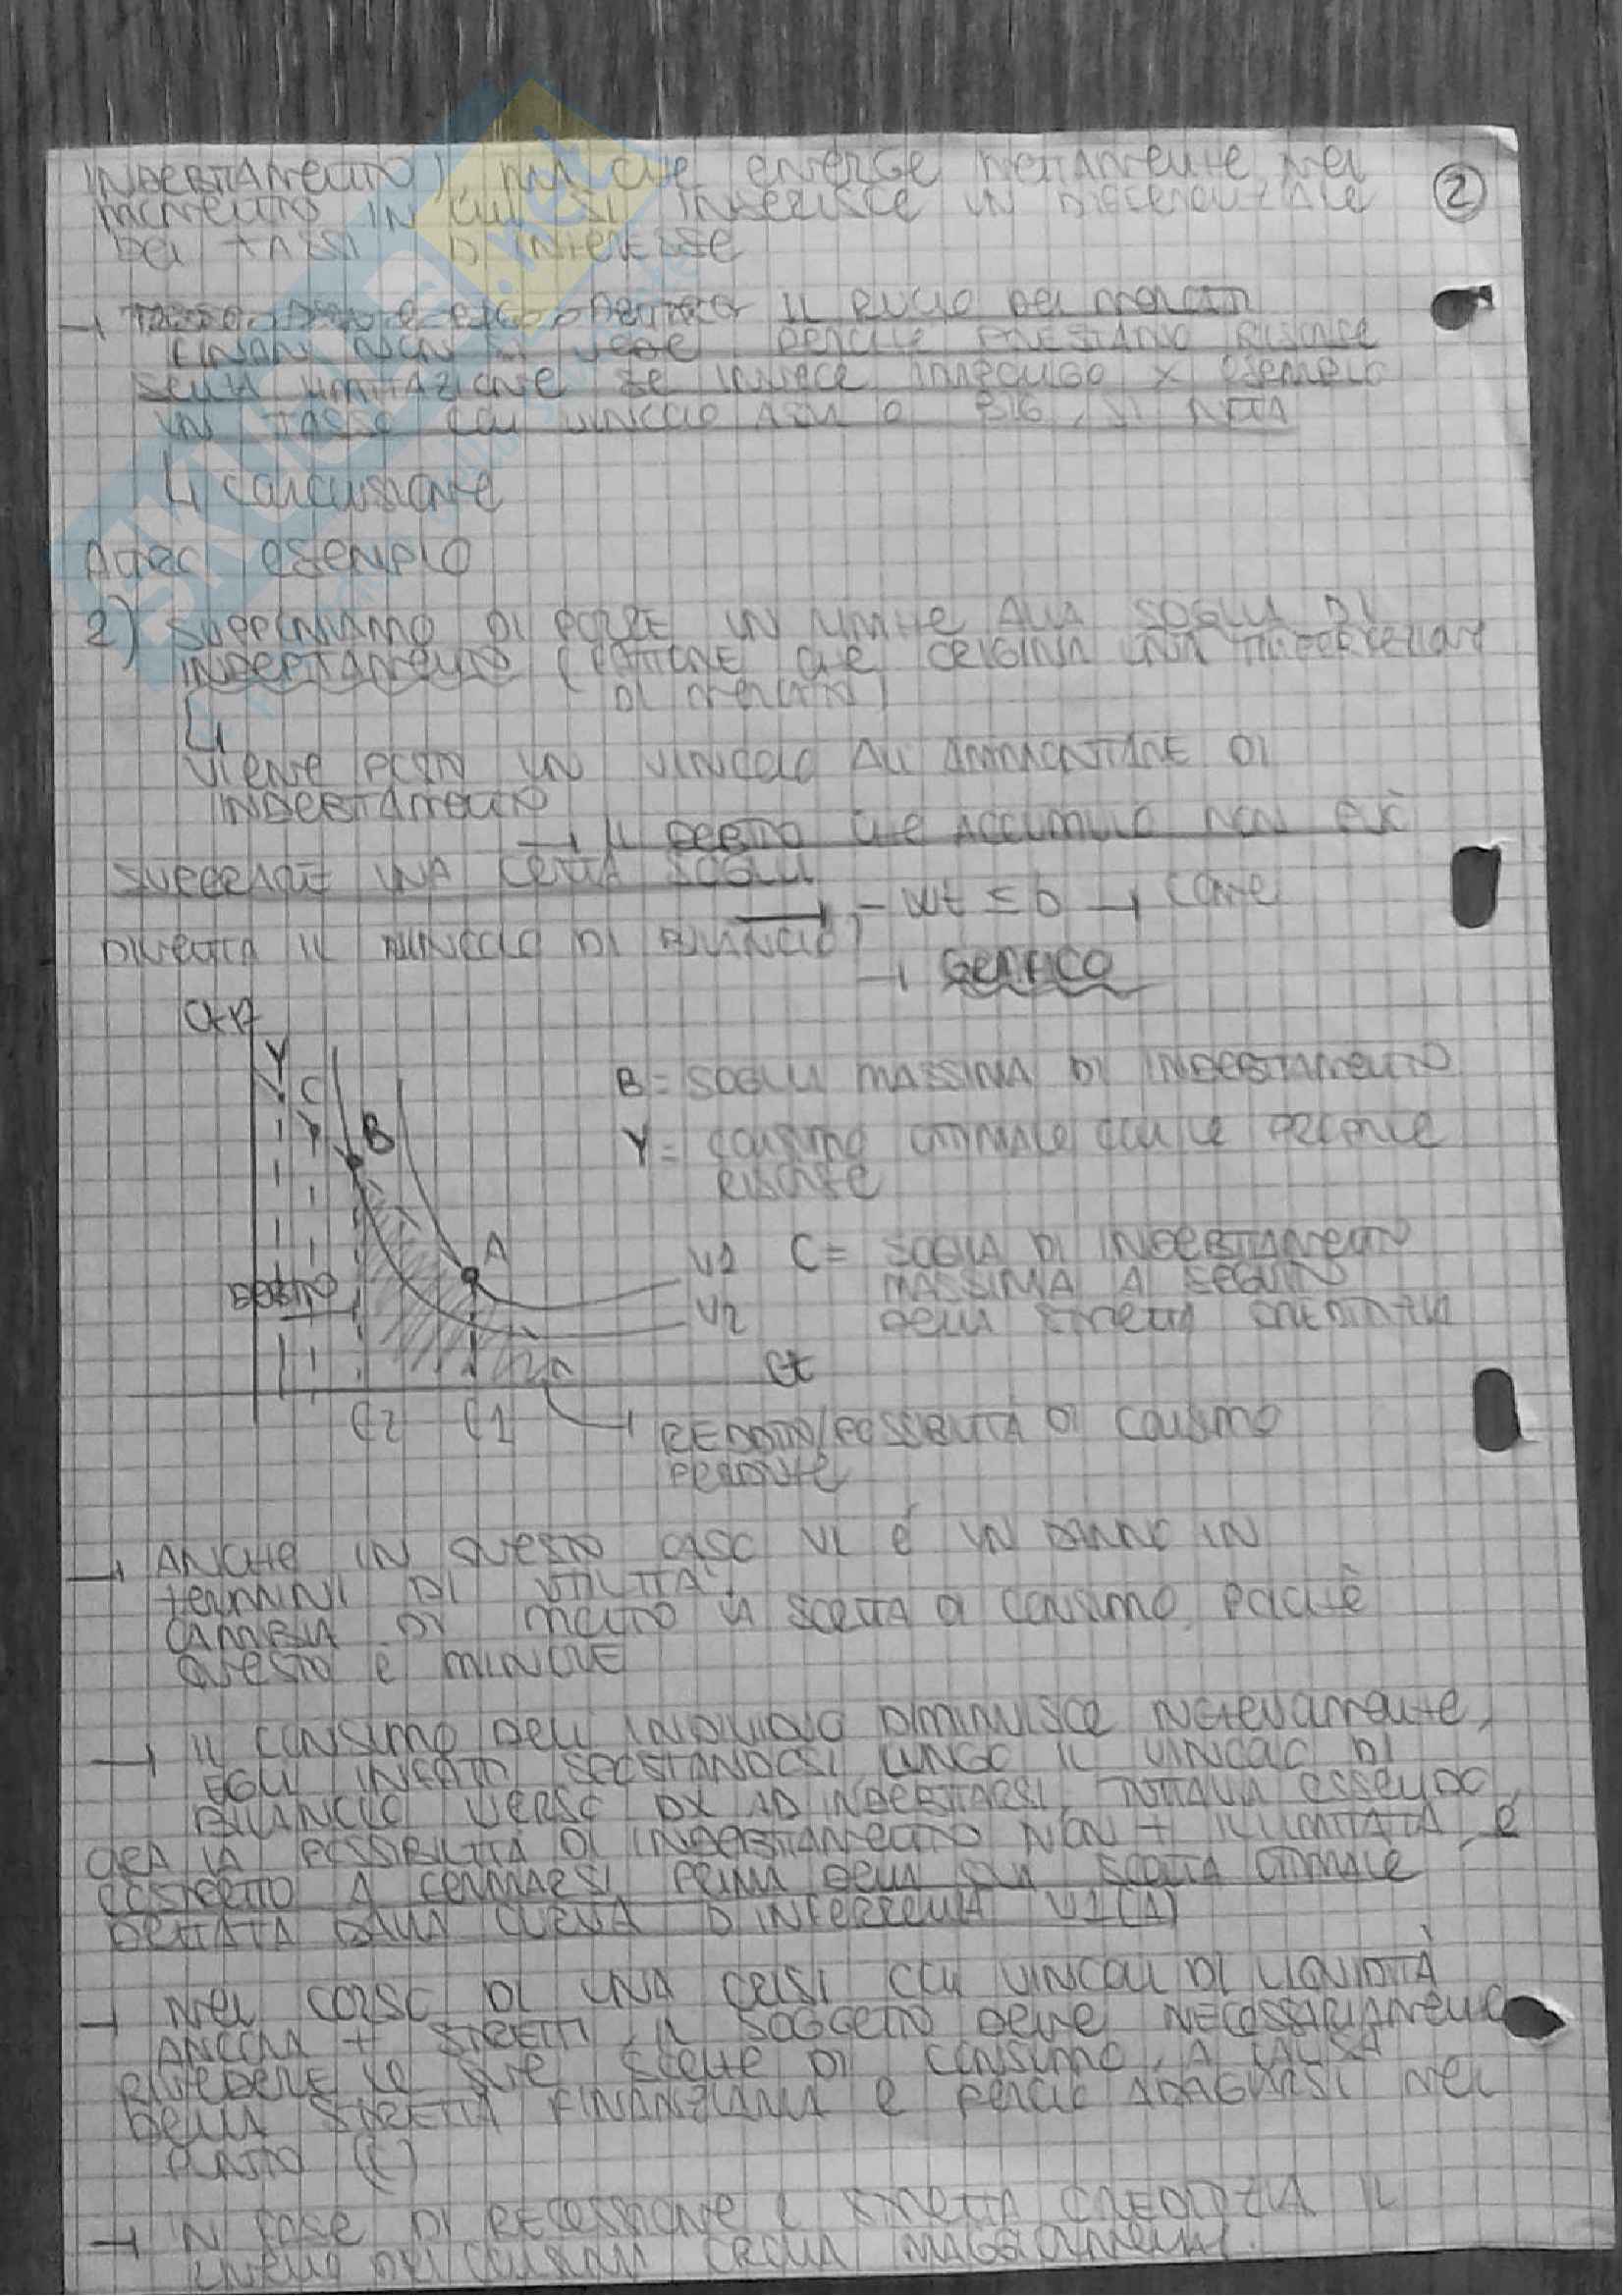 INDEBITAMENTO), MA CHE EMERGE NETTAMENTE NEL
MOMENTO IN CUI SI INSERISCE UN DIFFERENZIALE
DEI TASSI D'INTERESSE
2
→ IL RUOLO DEI MERCATI
FINAN NON SI VEDE PERCHÉ PRESTANO RISORSE
SENZA LIMITAZIONE SE INVECE INTRODUCO X ESEMPIO
UN TASSO CON VINCOLO ASIM O BIG, SI NOTA
↳ CONCLUSIONE
ALTRO ESEMPIO
2) SUPPONIAMO DI PORRE UN LIMITE ALLA SOGLIA DI
INDEBITAMENTO (FATTORE CHE ORIGINA UNA IMPERFEZIONE
DI MERCATO)
↳
VIENE POSTO UN VINCOLO ALL'AMMONTARE DI
INDEBITAMENTO
→ IL DEBITO CHE ACCUMULO NON PUÒ
SUPERARE UNA CERTA SOGLIA
→ - Wt ≤ b → COME
DIVENTA IL VINCOLO DI BILANCIO?
→ GRAFICO
Ct+1
Y
C
B
A
B = SOGLIA MASSIMA DI INDEBITAMENTO
Y = CONSUMO OTTIMALE CON LE PROPRIE
RISORSE
U1
U2
C = SOGLIA DI INDEBITAMENTO
MASSIMA A SEGUITO
DELLA STRETTA CREDITIZIA
DEBITO
Ct
C2 C1
→ REDDITO/POSSIBILITÀ DI CONSUMO
PERDUTE
→ ANCHE IN QUESTO CASO VI È UN DANNO IN
TERMINI DI UTILITÀ.
CAMBIA DI MOLTO LA SCELTA DI CONSUMO, POICHÈ
QUESTO È MINORE
→ IL CONSUMO DELL'INDIVIDUO DIMINUISCE NOTEVOLMENTE,
EGLI INFATTI SPOSTANDOSI LUNGO IL VINCOLO DI
BILANCIO VERSO DX AD INDEBITARSI, TUTTAVIA ESSENDO
ORA LA POSSIBILITÀ DI INDEBITAMENTO NON + ILLIMITATA, È
COSTRETTO A FERMARSI PRIMA DELLA SUA SCELTA OTTIMALE
DETTATA DALLA CURVA D'INFERRENZA U1(A)
→ NEL CORSO DI UNA CRISI CON VINCOLI DI LIQUIDITÀ
ANCORA + STRETTI, IL SOGGETTO DEVE NECESSARIAMENTE
RIVEDERE LE SUE SCELTE DI CONSUMO, A CAUSA
DELLA STRETTA FINANZIARIA E PERCIÒ ADAGIARSI NEL
PUNTO (C)
→ IN FASE DI RECESSIONE E STRETTA CREDITIZIA IL
LIVELLO DEI CONSUMI CROLLA MAGGIORMENTE.